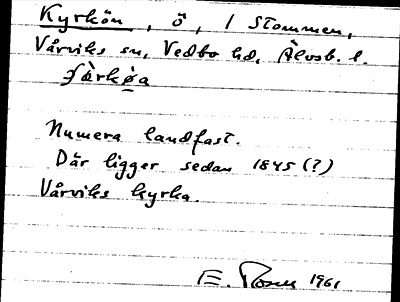 Kyrkön, ö, i Stommen,
Vårviks sn, Vedbo hd, Älvsb. l.
Numera landfast.
Där ligger sedan 1845 (?)
Vårviks kyrka.
E. 1961